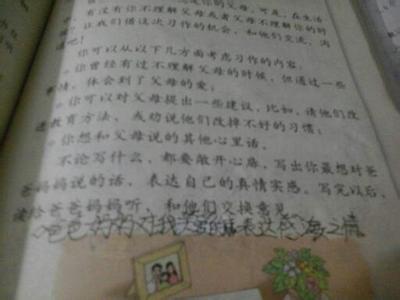 有没有你不理解父母或者父母不理解你的时
，让我们借这次习作的机会，和他们交流、沟
通吧！
你可以从以下几方面考虑习作的内容。
你曾经有过不理解父母的时候，但通过一些
事情，体会到了父母的爱；
你可以对父母提出一些建议，比如，请他们改
进教育方法，或劝说他们改掉不好的习惯；
你想和父母说的其他心里话。
不论写什么，都要敞开心扉，写出你最想对爸
爸妈妈说的话，表达自己的真情实感。写完以后，
读给爸爸妈妈听，和他们交换意见
爸爸妈妈对我
表达
之情